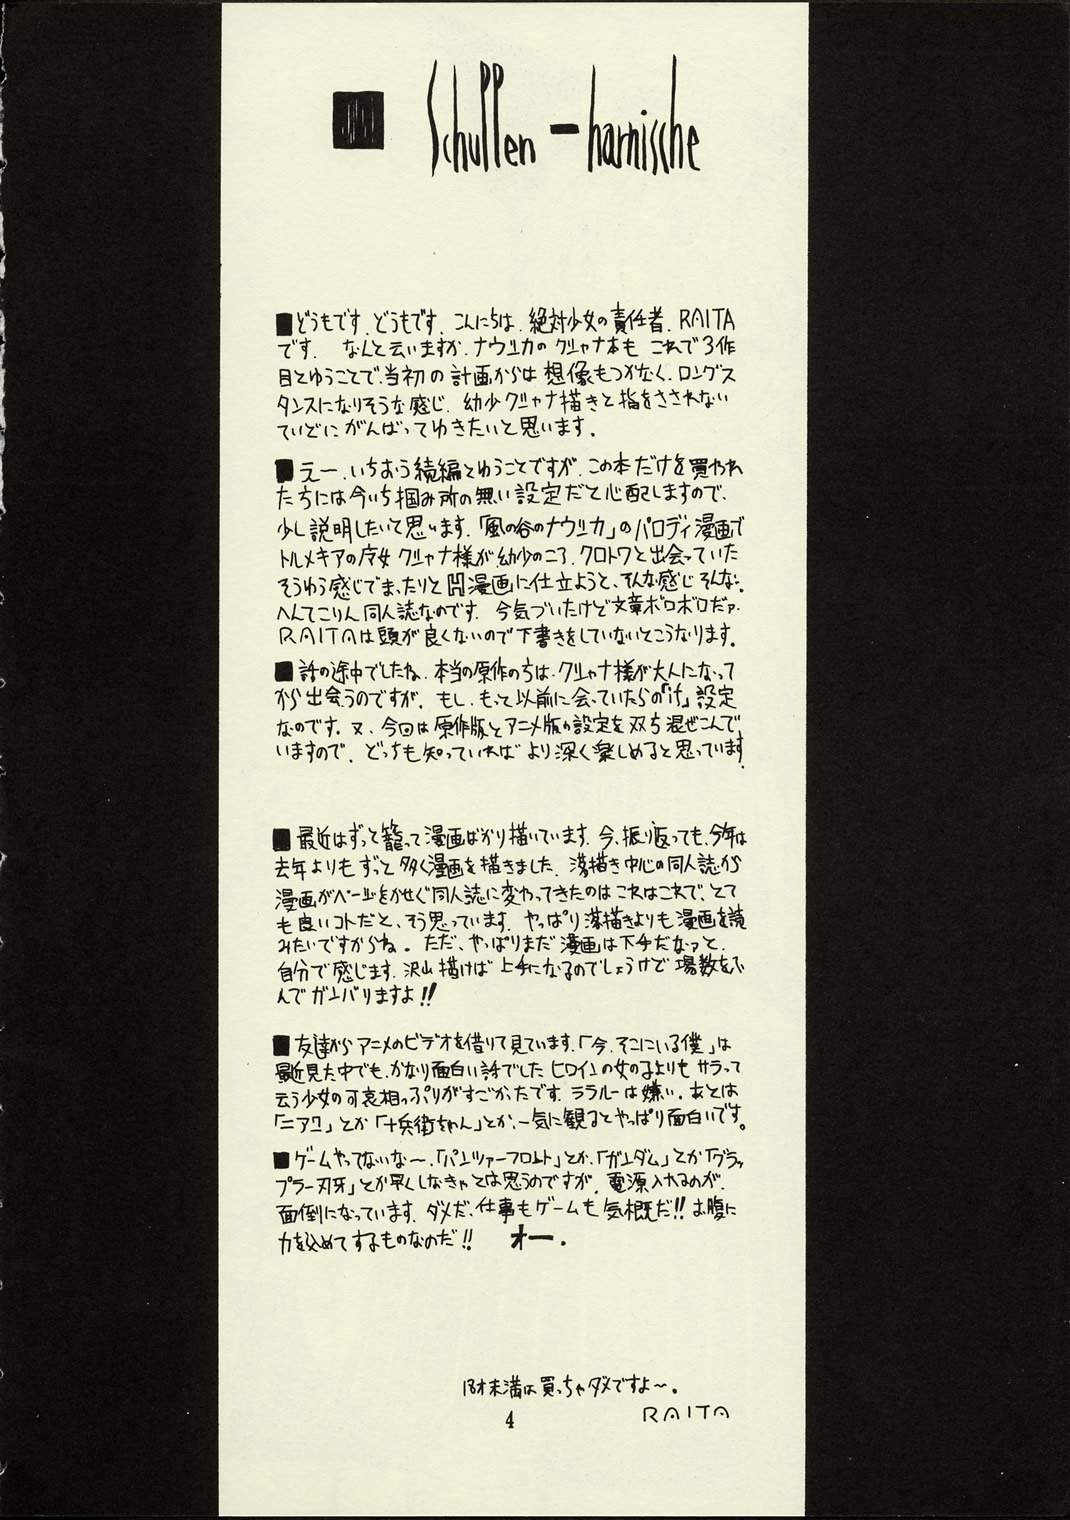 Schuppen-harnische
■どうもです、どうもです、こんにちは、絶対少女の責任者、RAITA
です。なんと云いますか、ナウシカのクシャナ本も これで3作
目とゆうことで、当初の計画からは想像もつかなく、ロングス
タンスになりそうな感じ、幼少クシャナ描きと指をさされない
ていどにがんばってゆきたいと思います。
■えー、いちおう続編とゆうことですが、この本だけを買われ
たちには今いち掴み所の無い設定だと心配しますので、
少し説明したいと思います、「風の谷のナウシカ」のパロディ漫画で
トルメキアの皇女クシャナ様が幼少のころ、クロトワと出会っていた
そうゆう感じでまったりとH漫画に仕立ようと、そんな感じそんな、
へんてこりん同人誌なのです、今気づいたけど文章ボロボロだァ、
RAITAは頭が良くないので下書きをしていないとこうなります。
■話の途中でしたね、本当の原作のちは、クシャナ様が大人になって
から出会うのですが、もし、もっと以前に会っていたらの「if」設定
なのです。又、今回は原作版とアニメ版の設定を双ち混ぜこんで
いますので、どっちも知っていればより深く楽しめると思っています。
■最近はずっと籠って漫画ばかり描いています、今、振り返っても、今年は
去年よりもずっと多く漫画を描きました、落描き中心の同人誌から
漫画がページをかせぐ同人誌に変わってきたのはこれはこれで、とて
も良いコトだと、そう思っています、やっぱり落描きよりも漫画を読
みたいですからね。ただ、やっぱりまだ漫画は下手だなァと、
自分で感じます、沢山描けば上手になるのでしょうけど場数をふ
んでガンバリますよ!!
■友達からアニメのビデオを借りて見ています、「今、そこにいる僕」は
最近見た中でも、かなり面白い話でした ヒロインの女の子よりもサラって
云う少女の可哀相っぷりがすごかったです、ララルーは嫌い、あとは
「ニア7」とか「十兵衛ちゃん」とか、一気に観るとやっぱり面白いです。
■ゲームやってないな〜、「パンツァーフロント」とか、「ガンダム」とか「グラッ
プラー刃牙」とか早くしなきゃとは思うのですが、電源入れるのが、
面倒になっています、ダメだ、仕事もゲームも気概だ!!お腹に
力を込めてするものなのだ!! オー.
18才未満は買っちゃダメですよ〜。
4
RAITA